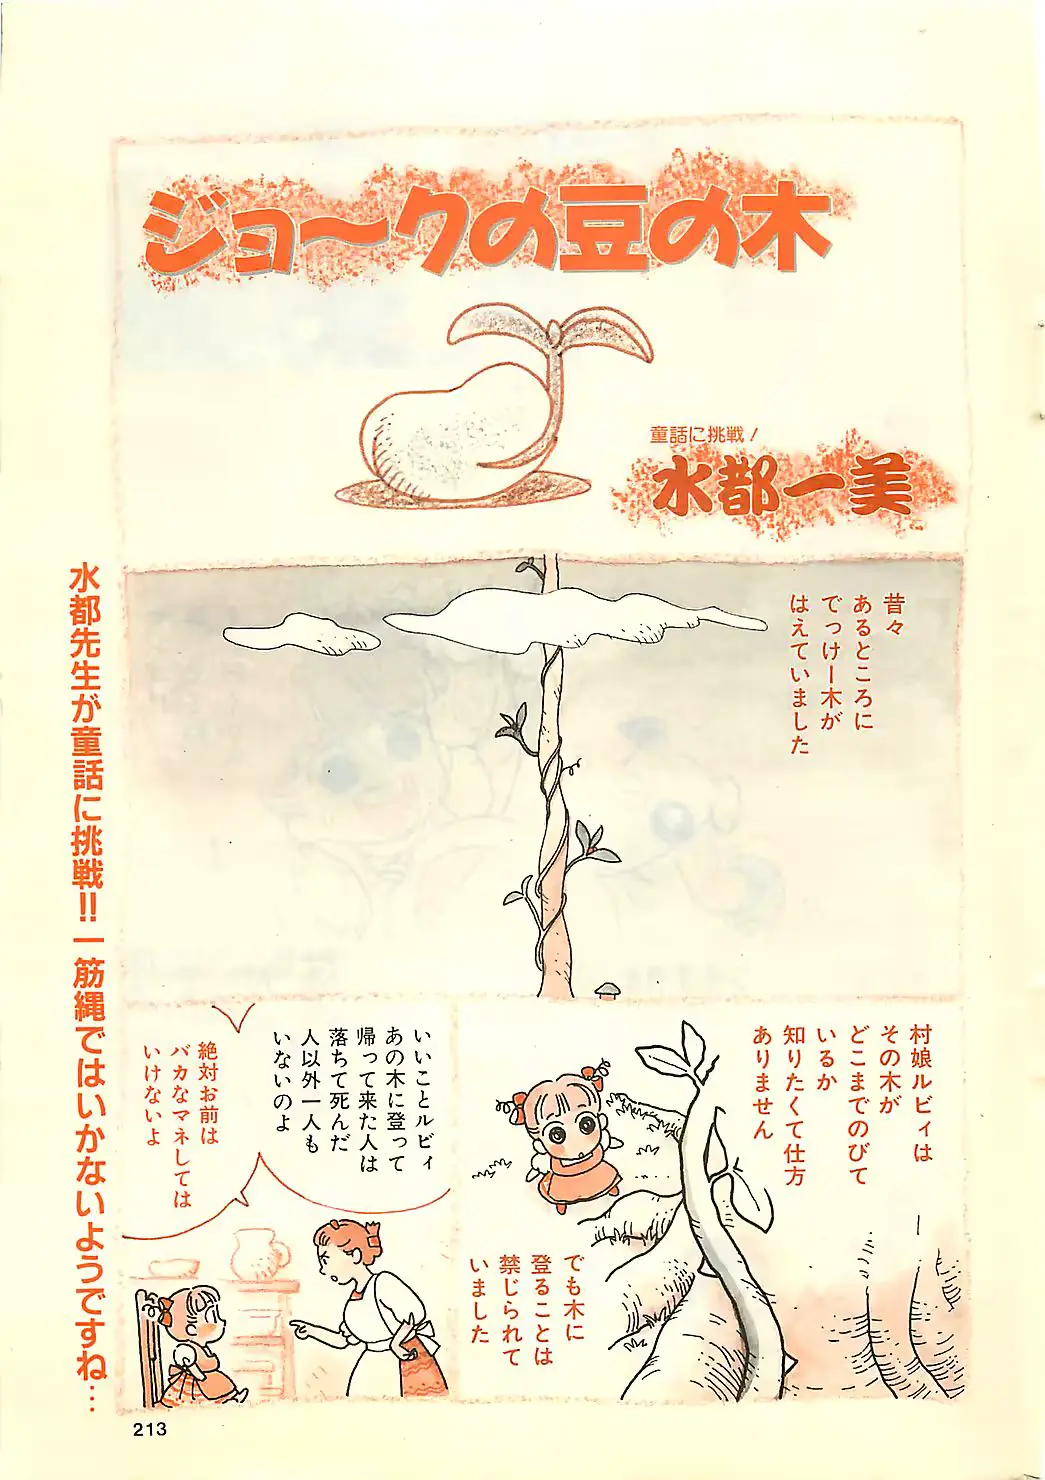 ジョ〜クの豆の木
童話に挑戦!
水都一美
水都先生が童話に挑戦!!一筋縄ではいかないようですね…
昔々
あるところに
でっけー木が
はえていました
村娘ルビィは
その木が
どこまでのびて
いるか
知りたくて仕方
ありません
でも木に
登ることは
禁じられて
いました
いいことルビィ
あの木に登って
帰って来た人は
落ちて死んだ
人以外一人も
いないのよ
絶対お前は
バカなマネしては
いけないよ
213